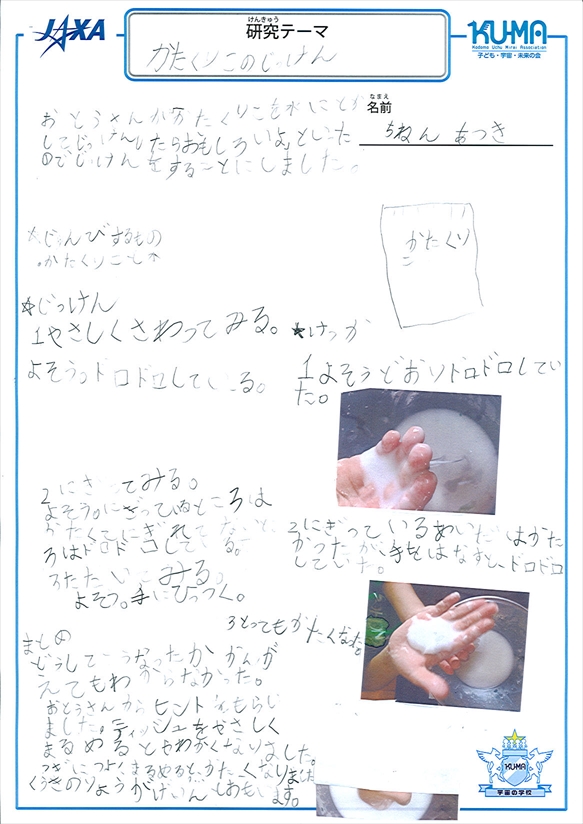 JAXA
けんきゅう
研究テーマ
かたくりこのじっけん
KU-MA
Kodomo Uchu Mirai Association
子ども・宇宙・未来の会
なまえ
名前
ちねん あつき
おとうさんがかたくりこを水にとか
してじっけんしたらおもしろいよ」といった
のでじっけんをすることにしました。
じゅんびするもの
・かたくりこ
かたくり
こ
☆じっけん
1やさしくさわってみる。
よそう。ドロドロしている。
☆けっか
1よそうどおりドロドロしてい
た。
2にぎってみる。
よそう。にぎっているところは
かたくて
ろはドロドロしている。
2にぎっているあいだはかた
かったが、手をはなすと、ドロドロ
していた。
3たたいてみる。
よそう。手にひっつく。
3とってもかたくなった。
まとめ
どうしてこうなったかかんが
えてもわからなかった。
おとうさんからヒントをもらい
ました。ティッシュをやさしく
まるめるとやわかくなりました。
つぎにつよくまるめるとかたくなりました
くうきのりょうがげいんとおもいます。
KU-MA
宇宙の学校